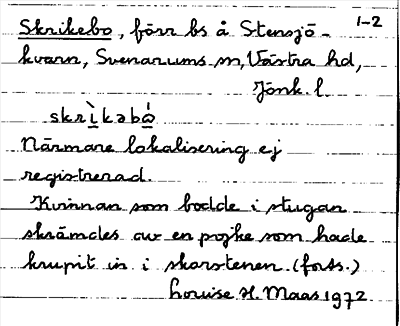 1-2
Skrikebo, förr bs å Stensjö-
kvarn, Svenarums sn, Västra hd,
Jönk l.
skrìkəbó̱
Närmare lokalisering ej
registrerad.
Kvinnan som bodde i stugan
skrämdes av en pojke som hade
krupit in i skorstenen. (forts.)
Louise H. Maas 1972